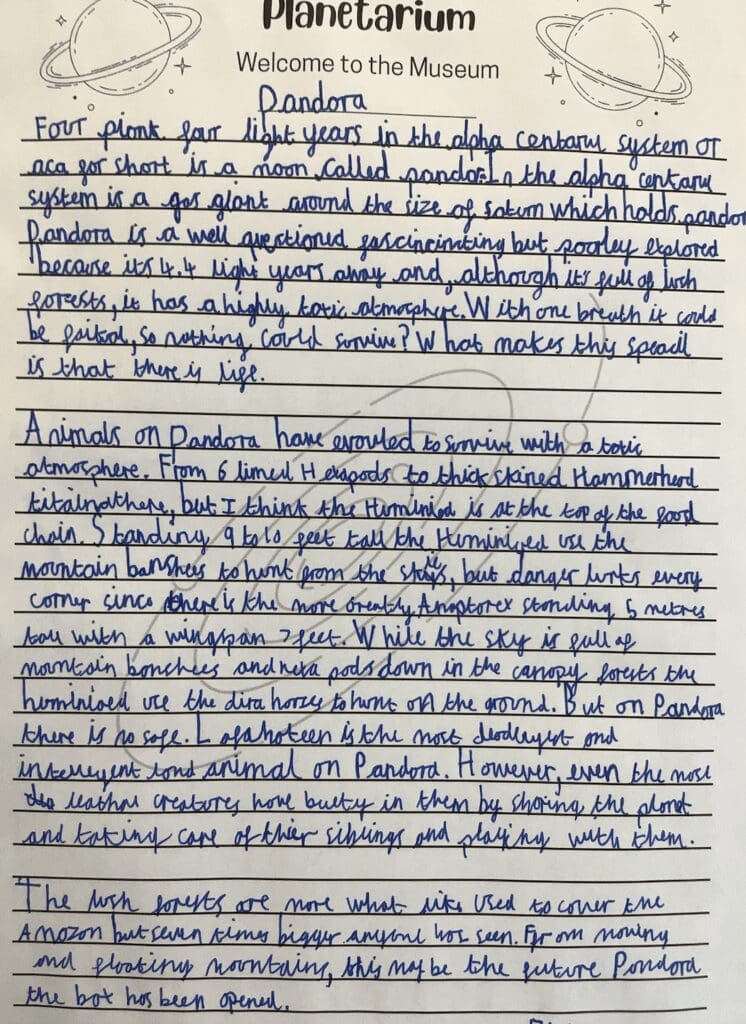 Planetarium
Welcome to the Museum
Pandora
Four piont four light years in the alpha centaruı system or
aca for short is a moon called pandor. In the alpha centaruı
system is a gas giant around the size of saturn which holds pandor
Pandora is a well questioned fascincinating but poorley explored
because its 4.4 light years away and, although it's full of lush
forests, it has a highly toxic atmosphere. With one breath it could
be faital, so nothing could survive? What makes this speacil
is that there is life.
Animals on Pandora have evovled to survive with a toxic
atmosphere. From 6 limed Hexapods to thick skined Hammerhead
titainothere, but I think the Huminiod is at the top of the food
chain. Standing 9 to 10 feet tall the Huminiyed use the
mountain banshees to hunt from the skys, but danger lurks every
corner since there is the more Greatly Anoptorex standing 5 metres
tall with a wingspan 7 feet. While the sky is full of
mountain bonchees and hexapods down in the canopy forests the
huminioed use the dira horses to hunt on the ground. But on Pandora
there is no safe. Lafahoteen is the most deadleyest and
intelleyent land animal on Pandora. However, even the most
leathal creatures have buety in them by sharing the planet
and taking care of thier siblings and playing with them.
The lush forests are more what like used to cover the
Amozon but seven times bigger anyone has seen. From moving
and floating mountains, this may be the future Pandora
the box has been opened.